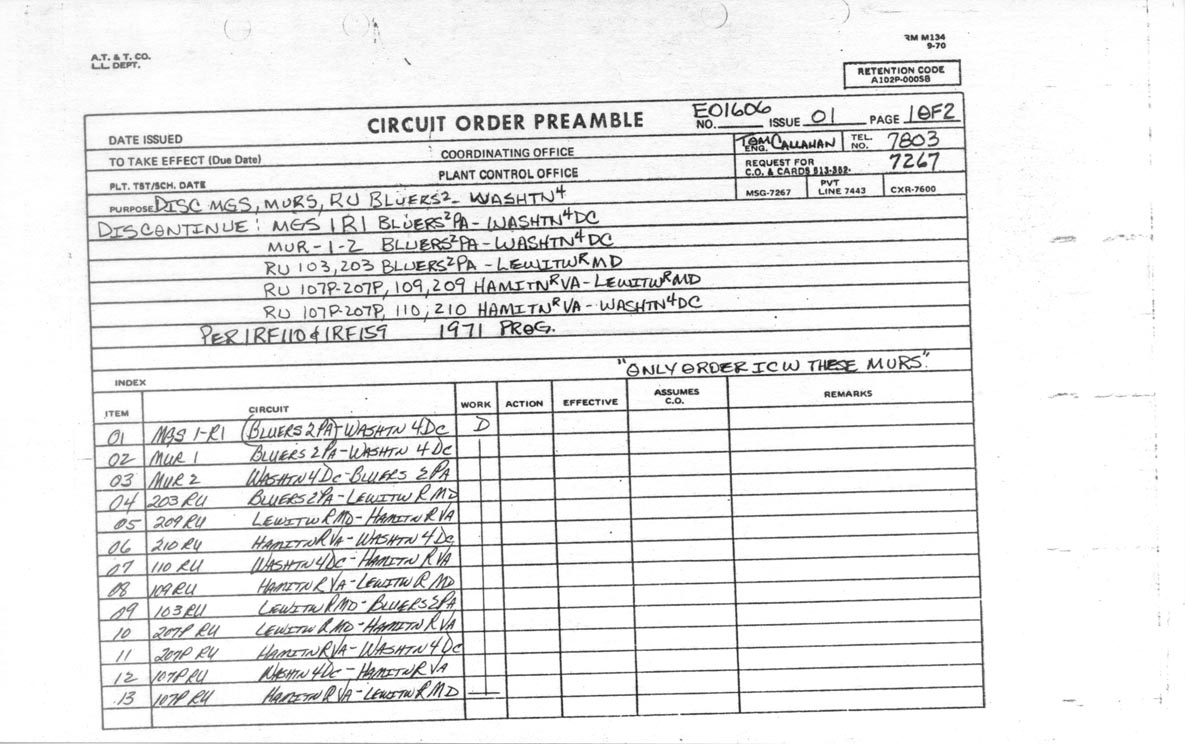 A.T. & T. CO.
L.L. DEPT.
RM M134
9-70
RETENTION CODE
A102P-000SB
CIRCUIT ORDER PREAMBLE
NO. E01606 ISSUE 01 PAGE 1 OF 2
DATE ISSUED
TO TAKE EFFECT (Due Date) COORDINATING OFFICE
ENG. TOM CALLAHAN TEL. NO. 7803
PLANT CONTROL OFFICE
REQUEST FOR C.O. & CARDS 7267
PLT. TST/SCH. DATE
MSG-7267 PVT LINE 7443 CXR-7600
PURPOSE DISC MGS, MURS, RU BLUERS2- WASHTN4
DISCONTINUE: MGS 1R1 BLUERS2PA-WASHTN4DC
MUR-1-2 BLUERS2PA-WASHTN4DC
RU 103,203 BLUERS2PA-LEWITWRMD
RU 107P-207P, 109,209 HAMITNRVA-LEWITWRMD
RU 107P-207P, 110,210 HAMITNRVA-WASHTN4DC
PER 1RF110 & 1RF159 1971 PROG.
"ONLY ORDER ICW THESE MURS".
INDEX
ITEM CIRCUIT WORK ACTION EFFECTIVE ASSUMES C.O. REMARKS
01 MGS 1-R1 BLUERS 2 PA-WASHTN 4 DC D
02 MUR 1 BLUERS 2 PA-WASHTN 4 DC
03 MUR 2 WASHTN 4 DC-BLUERS 2 PA
04 203 RU BLUERS 2 PA-LEWITW R MD
05 209 RU LEWITW R MD-HAMITN R VA
06 210 RU HAMITN R VA-WASHTN 4 DC
07 110 RU WASHTN 4 DC-HAMITN R VA
08 109 RU HAMITN R VA-LEWITW R MD
09 103 RU LEWITW R MD-BLUERS 2 PA
10 207P RU LEWITW R MD-HAMITN R VA
11 207P RU HAMITN R VA-WASHTN 4 DC
12 107P RU WASHTN 4 DC-HAMITN R VA
13 107P RU HAMITN R VA-LEWITW R MD